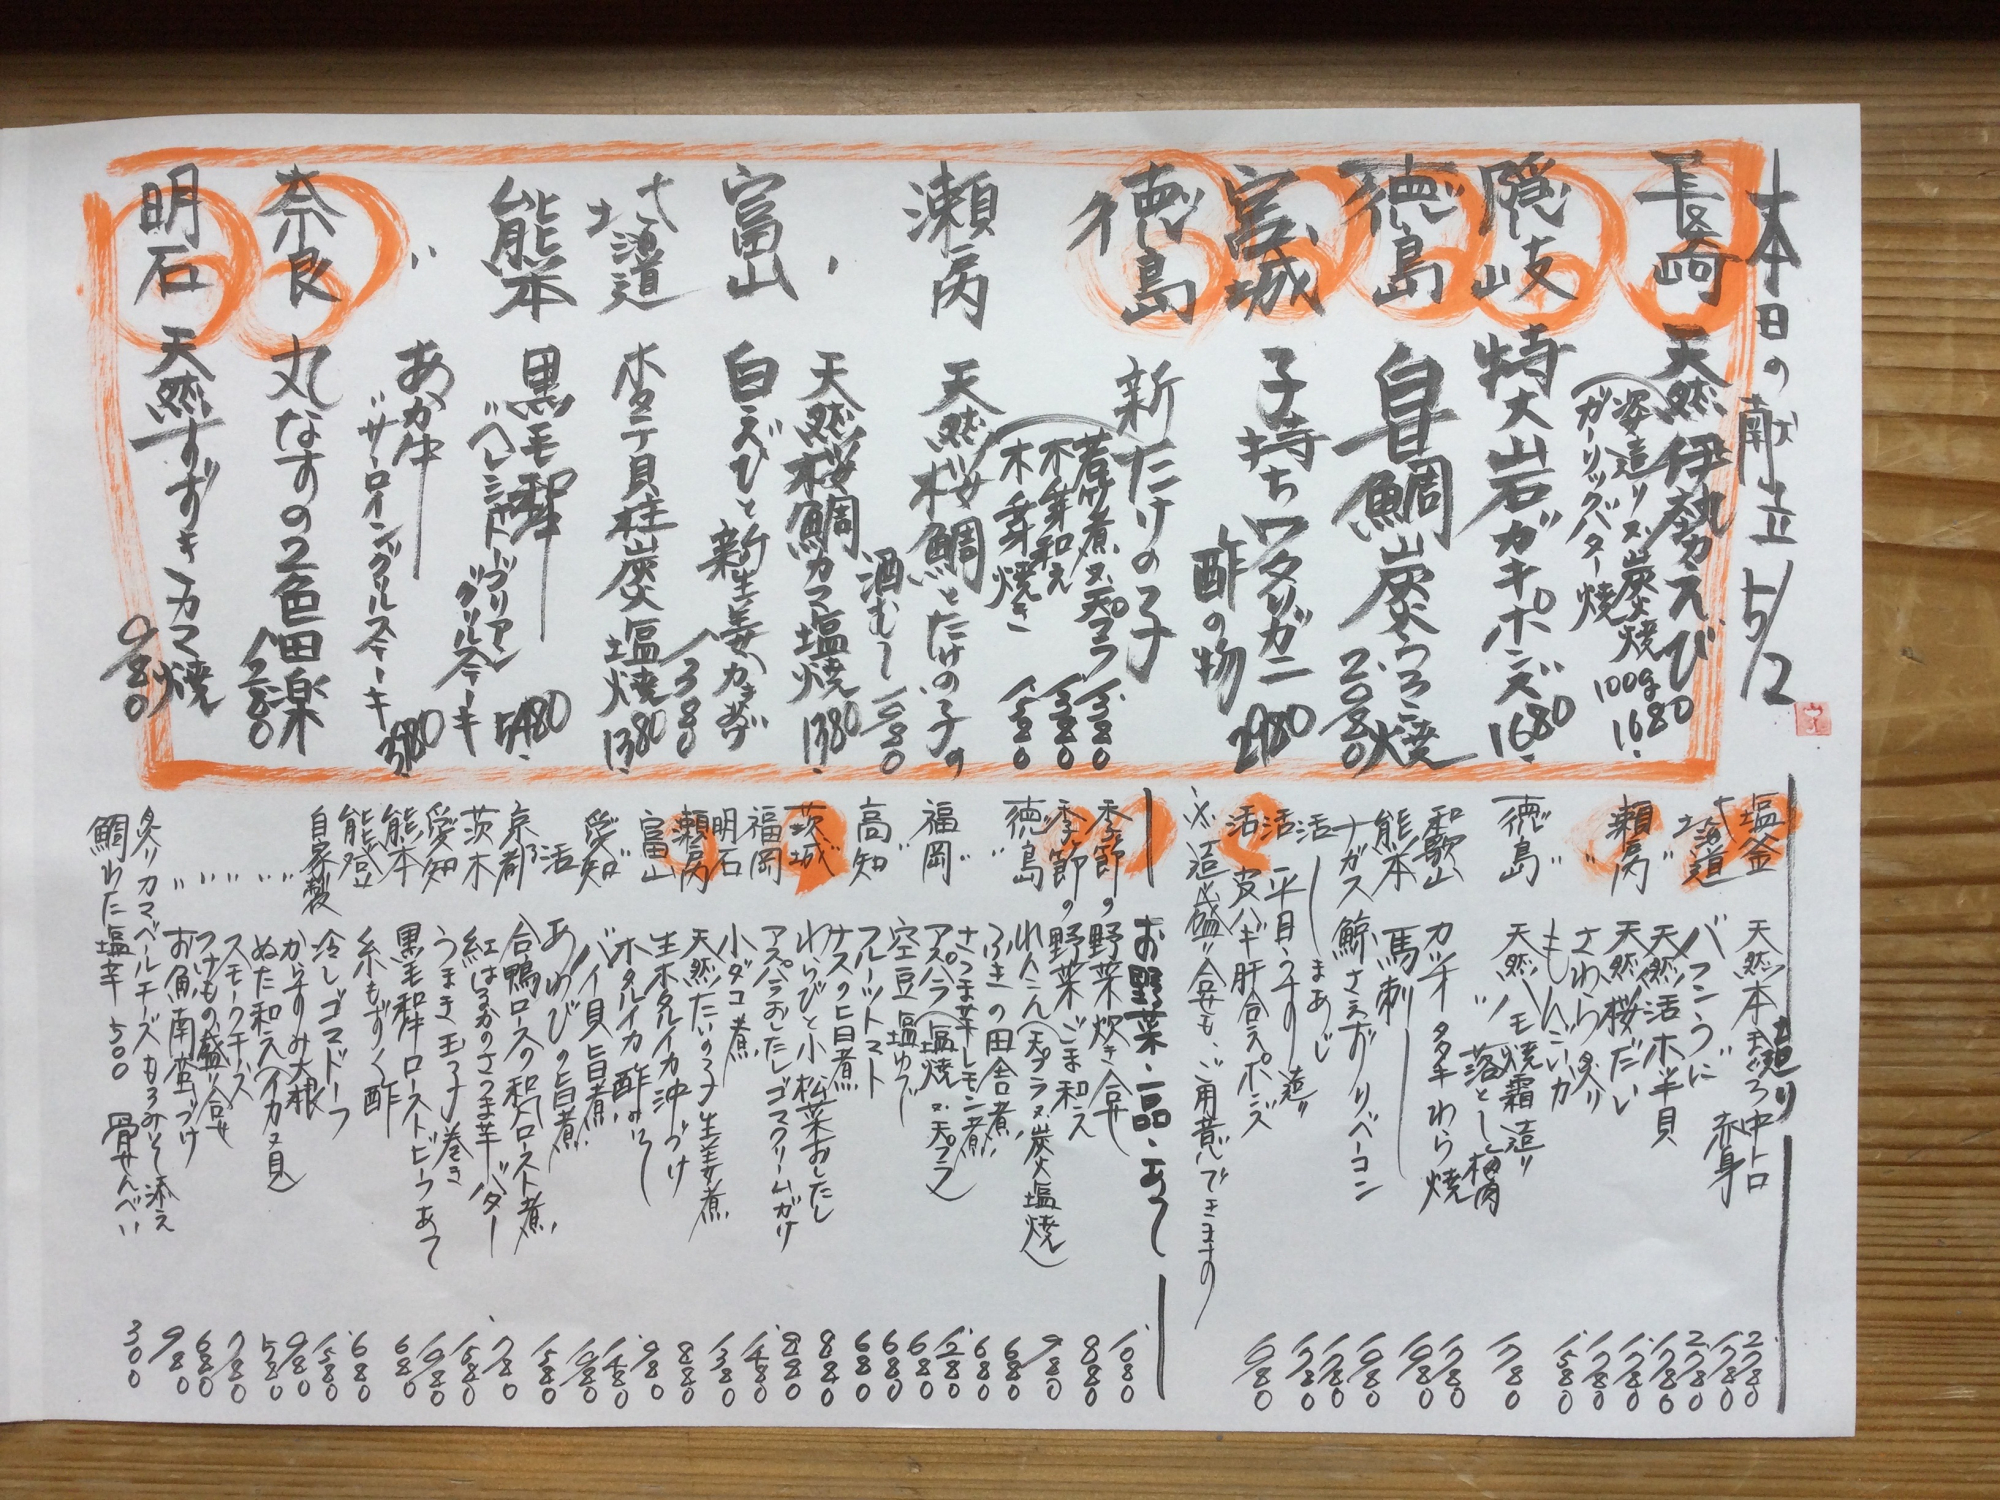 本日の献立 5/2
長崎 天然伊勢えび
姿造り又炭火焼 100g
ガーリックバター焼 1680
隠岐 特大岩ガキポンズ 1680
徳島 白甘鯛炭火うろこ焼 2080
宮城 子持ちワタリガニ
酢の物 2980
徳島 新たけの子
若竹煮又天プラ 1380
木ノ芽和え 1380
木ノ芽焼き 1580
瀬戸内 天然桜鯛とたけの子の
酒むし 1680
〃 天然桜鯛カマ塩焼 1380
富山 白えびと新生姜かきあげ 1380
北海道 ホタテ貝柱炭火塩焼 1380
熊本 黒毛和牛
“ヘレシャトーブリアン”
グリルステーキ 5480
〃 あか牛
“サーロイン”グリルステーキ 3980
奈良 丸なすの2色田楽 1280
明石 天然すずきカマ焼 980
お造り
塩釜 天然本まぐろ中トロ 2780
赤身 1780
北海道 バフンうに 2780
〃 天然活ホッキ貝 1780
瀬戸内 天然桜だい 1780
〃 さわら炙り 1780
もんごいか 1580
徳島 天然ハモ焼霜造り
〃 〃 落とし梅肉 1780
和歌山 カツオタタキわら焼 1780
熊本 馬刺し 1980
ナガス鯨さえずりベーコン 1980
活〆まあじ 1780
活 平目うすり造り 1780
活 皮ハギ肝合えポンズ 1980
※造り盛り合せも、ご用意できます
お野菜・一品・あて
季節の野菜炊き合せ 1080
季節の野菜ごま和え 880
徳島 れんこん(天プラ又炭火塩焼) 980
〃 ふきの田舎煮 680
さつま芋レモン煮 680
福岡 アスパラ(塩焼又天プラ) 1280
〃 空豆塩ゆで 680
フルーツトマト 680
高知 ナスの旨煮 680
わらびと小松菜おひたし 880
茨城 アスパラおひたしゴマクリームがけ 880
福岡 小ダコ煮 1480
明石 天然たいの子生姜煮 1380
瀬戸内 生ホタルイカ沖づけ 880
富山 ホタルイカ酢みそ 980
バイ貝旨煮 1480
愛知 あわびの旨煮 1980
活 合鴨ロースの和ロースト煮 1580
京都 紅はるかのさつま芋バター 780
茨木 うまき玉子巻き 1580
愛知 黒毛和牛ローストビーフあて 1980
熊本 糸もずく酢 680
能登 冷しゴマドーフ 680
自家製 からすみ大根 1580
〃 ぬた和え(イカ又貝) 980
〃 スモークチーズ 580
〃 つけもの盛り合せ 780
〃 お魚南蛮づけ 680
炙りカマンベールチーズもろみそ添え 980
鯛わた塩辛 500 骨せんべい 300